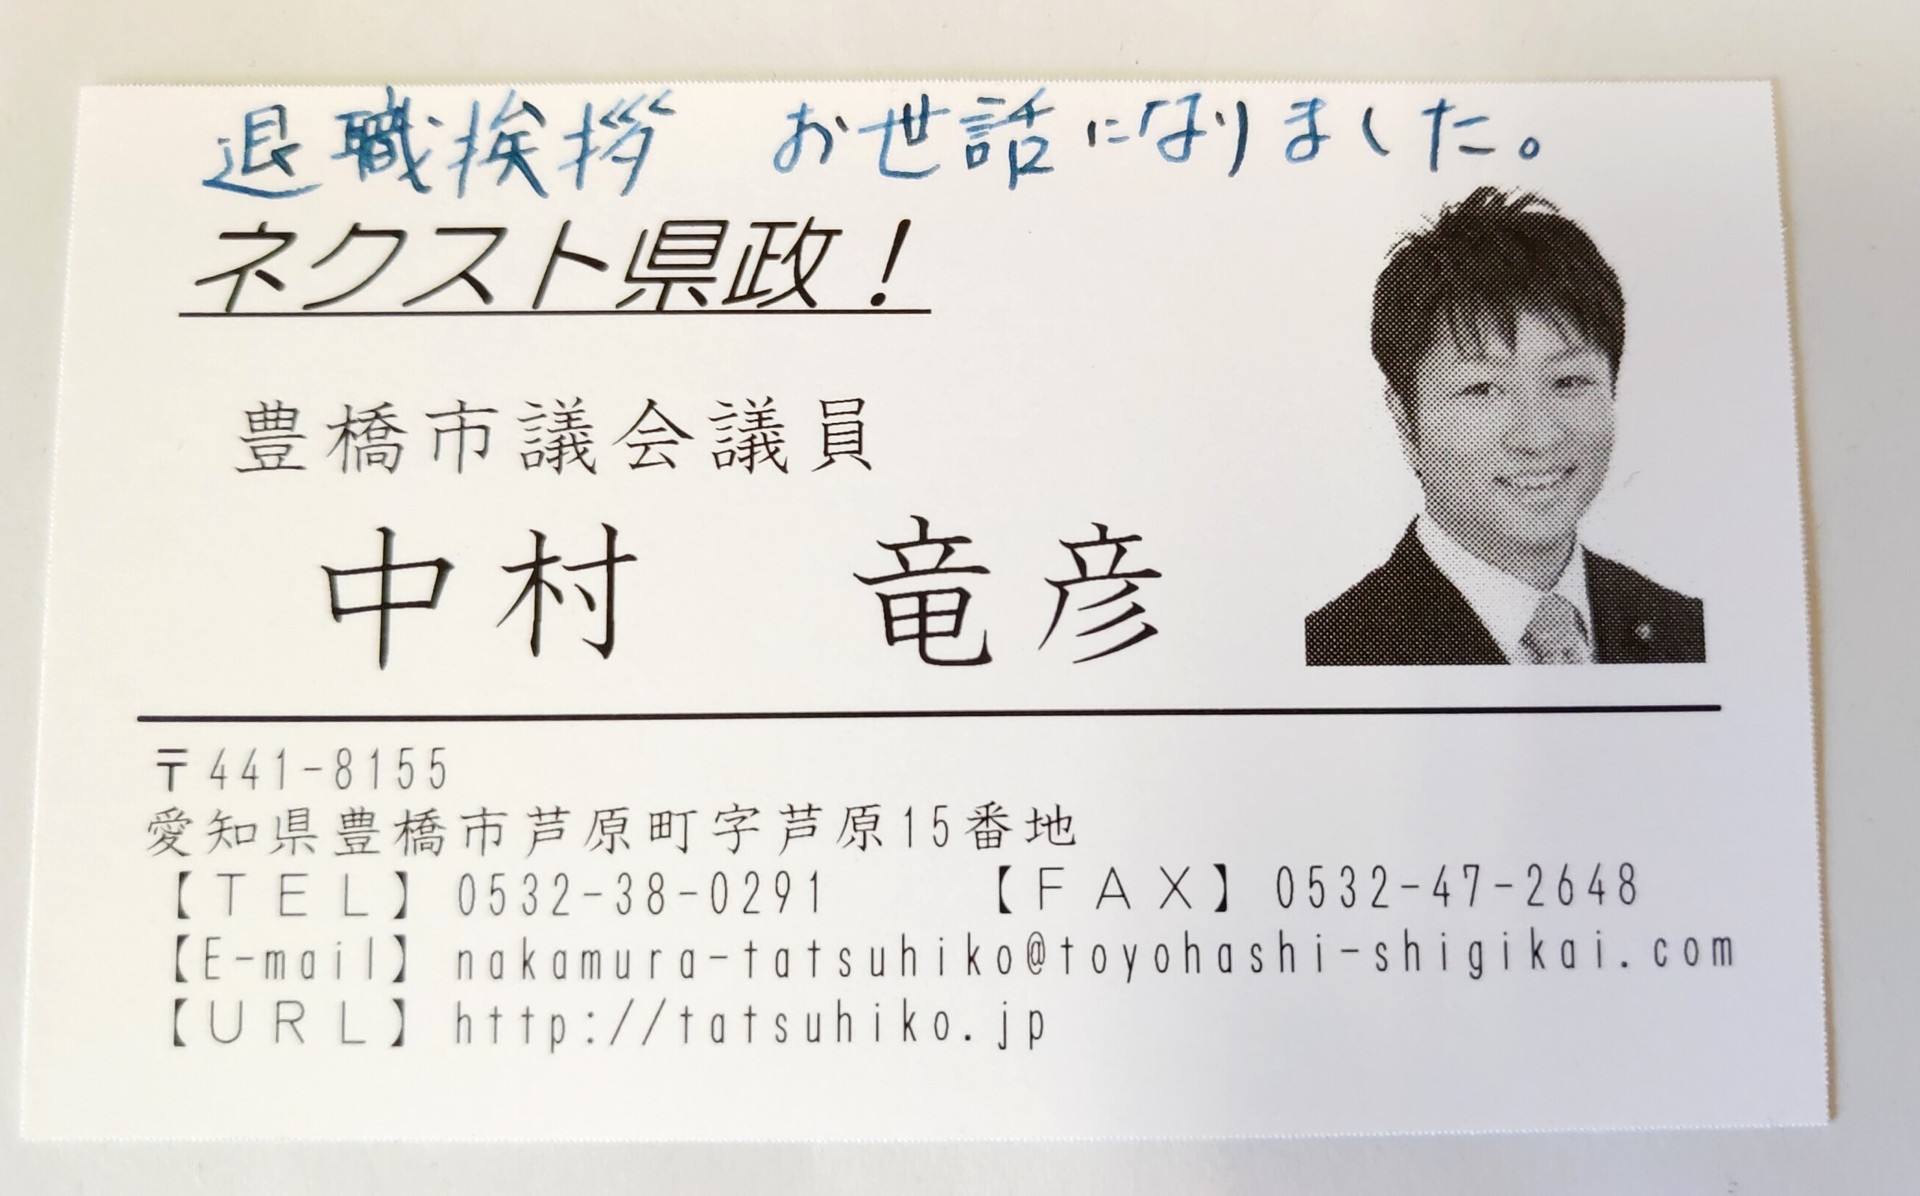 退職挨拶　お世話になりました。
ネクスト県政！
豊橋市議会議員
中村　竜彦
〒441-8155
愛知県豊橋市芦原町字芦原15番地
【ＴＥＬ】0532-38-0291　【ＦＡＸ】0532-47-2648
【E-mail】nakamura-tatsuhiko@toyohashi-shigikai.com
【ＵＲＬ】http://tatsuhiko.jp